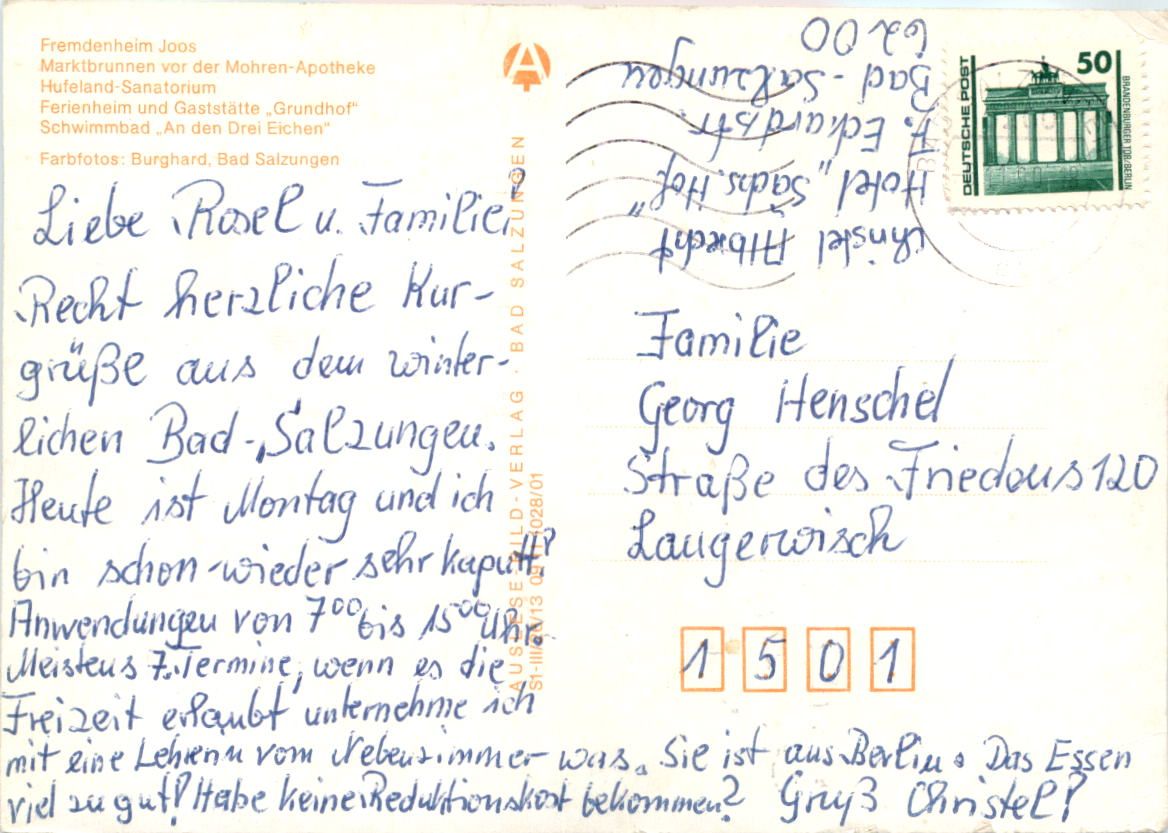 Fremdenheim Joos
Marktbrunnen vor der Mohren-Apotheke
Hufeland-Sanatorium
Ferienheim und Gaststätte „Grundhof“
Schwimmbad „An den Drei Eichen“
Farbfotos: Burghard, Bad Salzungen
Liebe Rosel u. Familie!
Recht herzliche Kur-
grüße aus dem winter-
lichen Bad-Salzungen.
Heute ist Montag und ich
bin schon wieder sehr kaputt!
Anwendungen von 7⁰⁰ bis 15⁰⁰ Uhr.
Meistens 7. Termine, wenn es die
Freizeit erlaubt unternehme ich
mit eine Lehrerin vom Nebenzimmer was. Sie ist aus Berlin. Das Essen
viel zu gut! Habe keine Reduktionskost bekommen? Gruß Christel!
AUSLESE-BILD-VERLAG · BAD SALZUNGEN
028/01
Christel Albrecht
Hotel „Sächs. Hof“
F. Eckardtstr.
Bad-Salzungen
6200
DEUTSCHE POST
50
BRANDENBURGER TOR/BERLIN
Familie
Georg Henschel
Straße des Friedens 120
Langerwisch
1 5 0 1